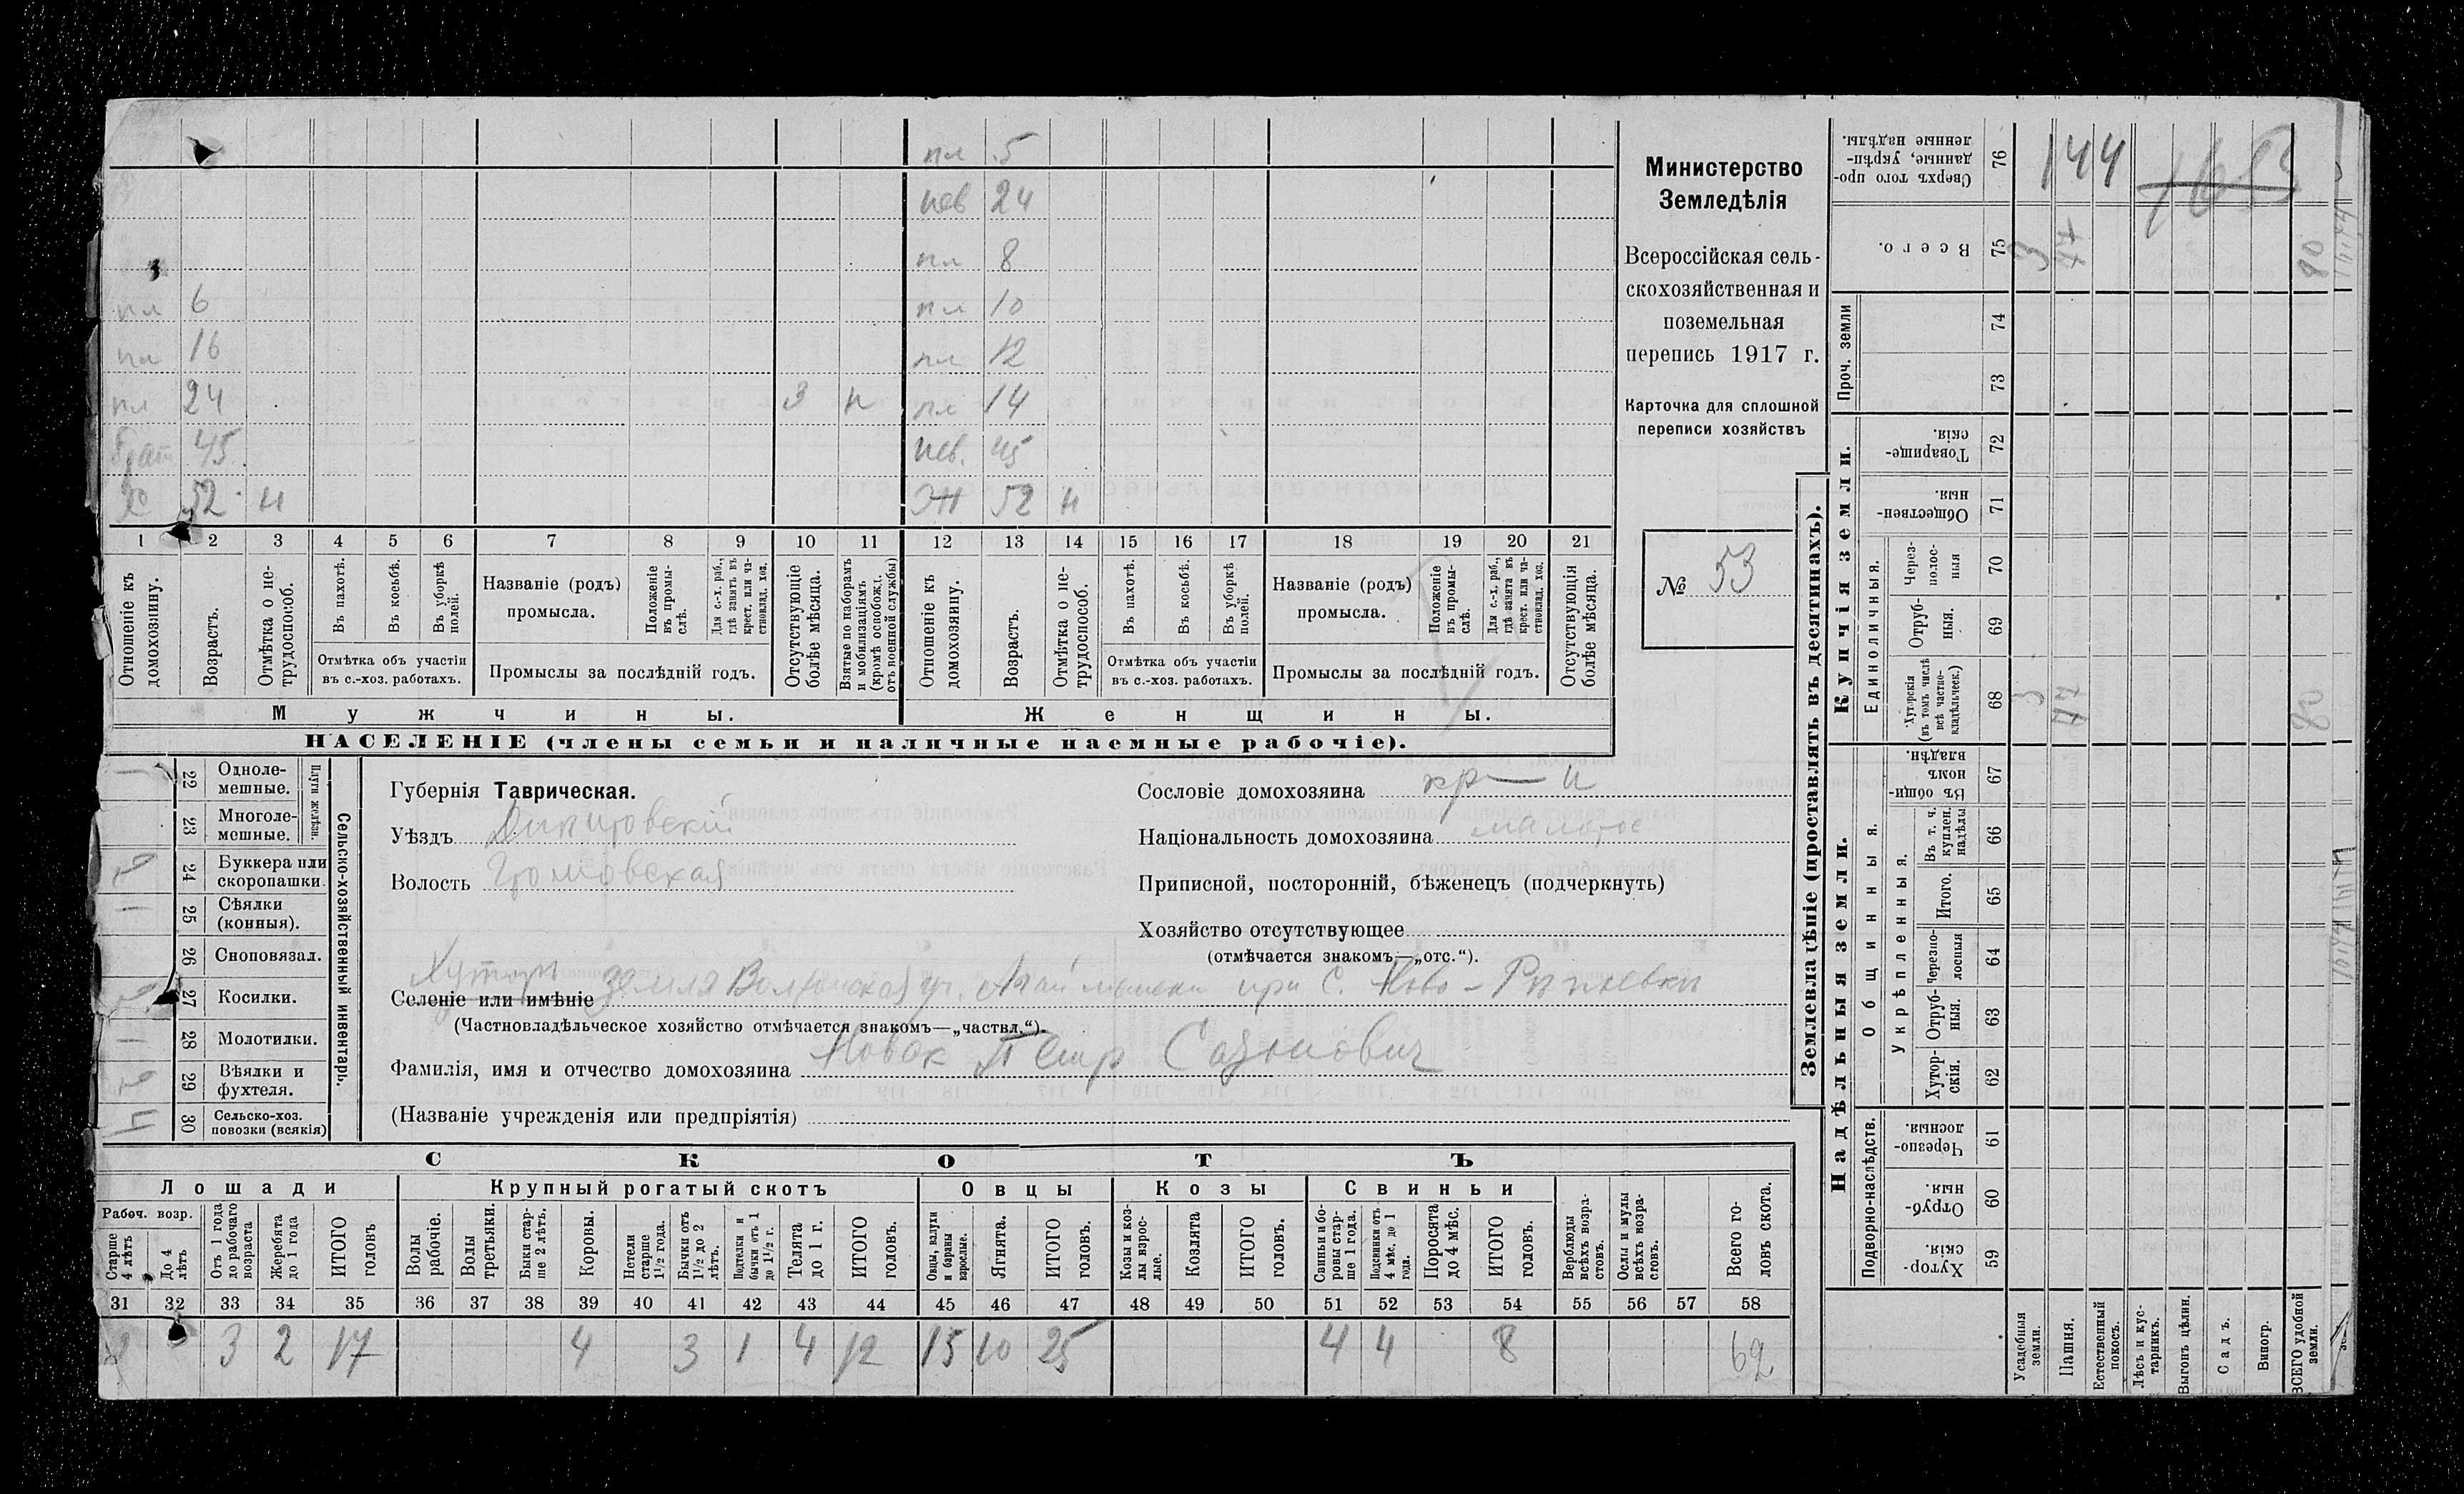 пл 5
нев 24
пл 8
пл 6 пл 10
пл 16 пл 12
пл 24 3 н пл 14
брат 45 нев. 45
Х 52 н Ж 52 н
1 2 3 4 5 6 7 8 9 10 11 12 13 14 15 16 17 18 19 20 21
Отношеніе къ домохозяину.
Возрастъ.
Отмѣтка о не-трудоспособ.
Въ пахотѣ.
Въ косьбѣ.
Въ уборкѣ полей.
Отмѣтка объ участіи въ с.-хоз. работахъ.
Названіе (родъ) промысла.
Положеніе въ промы-слѣ.
Для с.-х. раб., гдѣ занятъ въ крест. или ча-стновлад. хоз.
Промыслы за послѣдній годъ.
Отсутствующіе болѣе мѣсяца.
Взятые по наборамъ и мобилизаціямъ (кромѣ освобожд. отъ военной службы)
Отношеніе къ домохозяину.
Возрастъ.
Отмѣтка о не-трудоспособ.
Въ пахотѣ.
Въ косьбѣ.
Въ уборкѣ полей.
Отмѣтка объ участіи въ с.-хоз. работахъ.
Названіе (родъ) промысла.
Положеніе въ промы-слѣ.
Для с.-х. раб., гдѣ занята въ крест. или ча-стновлад. хоз.
Промыслы за послѣдній годъ.
Отсутствующія болѣе мѣсяца.
Мужчины. Женщины.
НАСЕЛЕНІЕ (члены семьи и наличные наемные рабочіе).
Министерство
Земледѣлія
Всероссійская сель-
скохозяйственная и
поземельная
перепись 1917 г.
Карточка для сплошной
переписи хозяйствъ
№ 53
Сельско-хозяйственный инвентарь.
Плуги желѣзн.
22 Однолемешные.
23 Многолемешные.
24 Буккера или скоропашки.
25 Сѣялки (конныя).
26 Сноповязал.
27 Косилки.
28 Молотилки.
29 Вѣялки и фухтеля.
30 Сельско-хоз. повозки (всякія)
Губернія Таврическая.
Уѣздъ Днѣпровскій
Волость Громовская
Сословіе домохозяина кр—н
Національность домохозяина малорос
Приписной, посторонній, бѣженецъ (подчеркнуть)
Хозяйство отсутствующее
(отмѣчается знакомъ—„отс.“).
Хуторъ
Селеніе или имѣніе земля при с. Ново-
(Частновладѣльческое хозяйство отмѣчается знакомъ—„частвл.“).
Фамилія, имя и отчество домохозяина Новак Петр Созонович
(Названіе учрежденія или предпріятія)
СКОТЪ
Лошади Крупный рогатый скотъ Овцы Козы Свиньи
Рабоч. возр.
Старше 4 лѣтъ
До 4 лѣтъ
Отъ 1 года до рабочаго возраста
Жеребята до 1 года
ИТОГО головъ
Волы рабочіе.
Волы третьяки.
Быки стар-ше 2 лѣтъ.
Коровы.
Нетели старше 1½ года.
Бычки отъ 1½ до 2 лѣтъ.
Подтелки и бычки отъ 1 до 1½ г.
Телята до 1 г.
ИТОГО головъ.
Овцы, валухи и бараны взрослые.
Ягнята.
ИТОГО головъ.
Козы и коз-лы взрос-лые.
Козлята
ИТОГО головъ.
Свиньи и бо-ровы стар-ше 1 года.
Подсвинки отъ 4 мѣс. до 1 года.
Поросята до 4 мѣс.
ИТОГО головъ.
Верблюды всѣхъ возра-стовъ.
Ослы и мулы всѣхъ возра-стовъ.
Всего го-ловъ скота.
31 32 33 34 35 36 37 38 39 40 41 42 43 44 45 46 47 48 49 50 51 52 53 54 55 56 57 58
3 2 17 4 3 1 4 12 15 10 25 4 4 8 62
Землевладѣніе (проставлять въ десятинахъ).
Надѣльныя земли.
Купчія земли.
Проч. земли
Подворно-наслѣдств.
Общинныя.
Укрѣпленныя.
Единоличныя.
76 Сверхъ того про-данные, укрѣп-ленные надѣлы.
144 1653
75 Всего. 3 77 80
74
73
72 Товарище-скія.
71 Обществен-ныя.
70 Через-полос-ныя
69 Отруб-ныя.
68 Хуторскія (въ томъ числѣ всѣ частно-владѣльческ.) 3 77 80
67 Въ общин-номъ владѣн.
66 Въ т. ч. куплен. надѣлы
65 Итого.
64 Черезпо-лосныя
63 Отруб-ныя.
62 Хутор-скія.
61 Черезпо-лосныя.
60 Отруб-ныя.
59 Хутор-скія.
Усадебныя земли.
Пашня.
Естественный покосъ.
Лѣсъ и кус-тарникъ.
Выгонъ цѣлин.
Садъ.
Виногр.
ВСЕГО удобной земли.